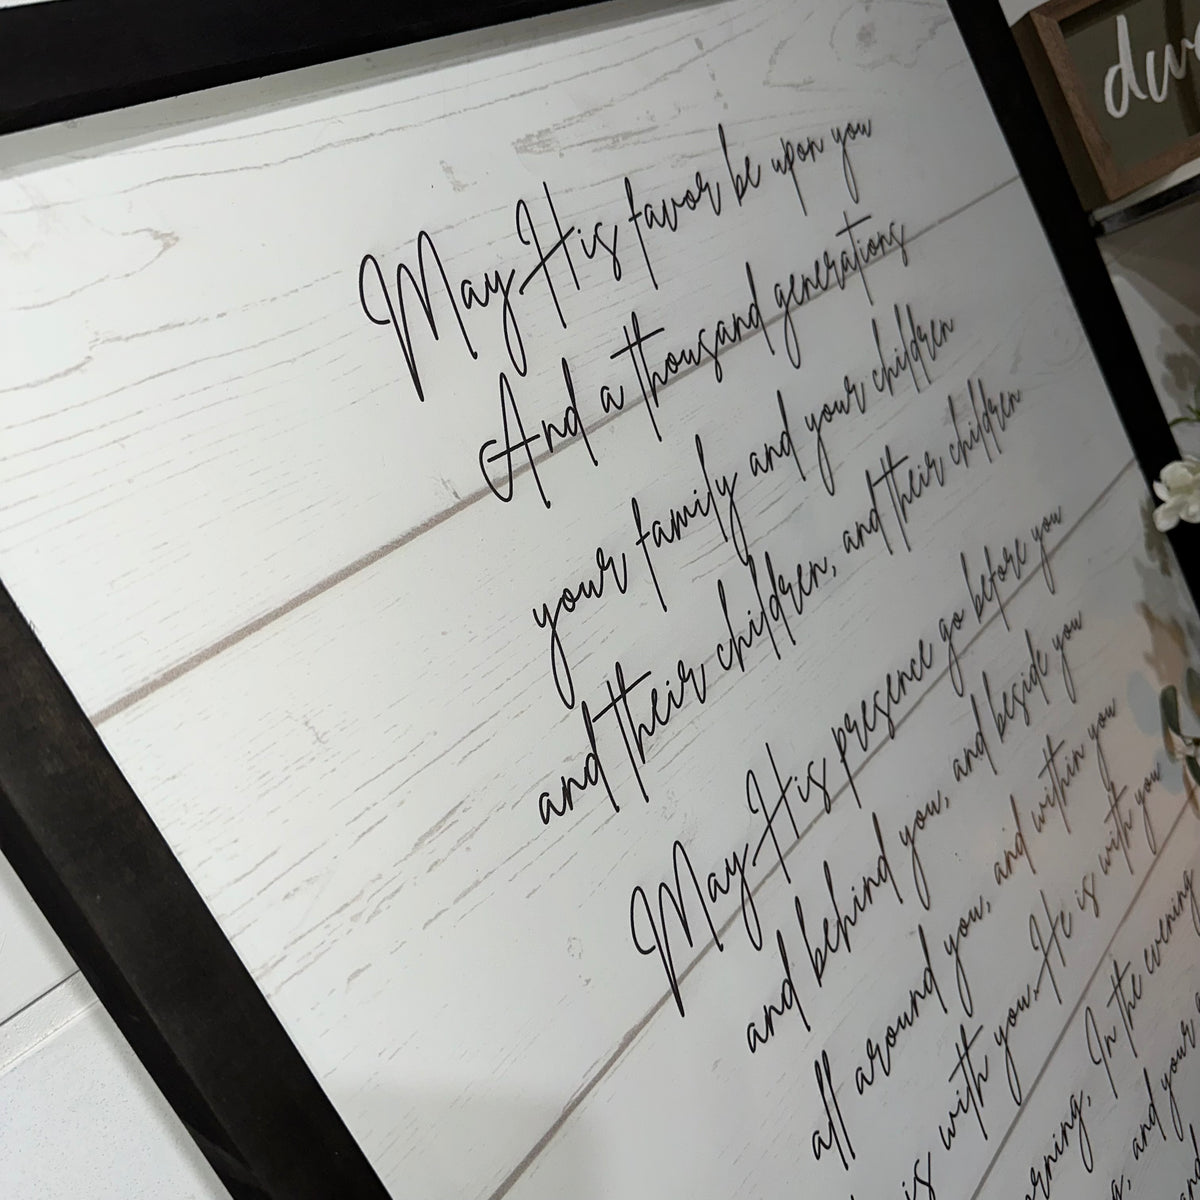 May His favor be upon you
And a thousand generations
your family and your children
and their children, and their children
May His presence go before you
and behind you, and beside you
all around you, and within you
is with you. He is with you
In the evening
and your